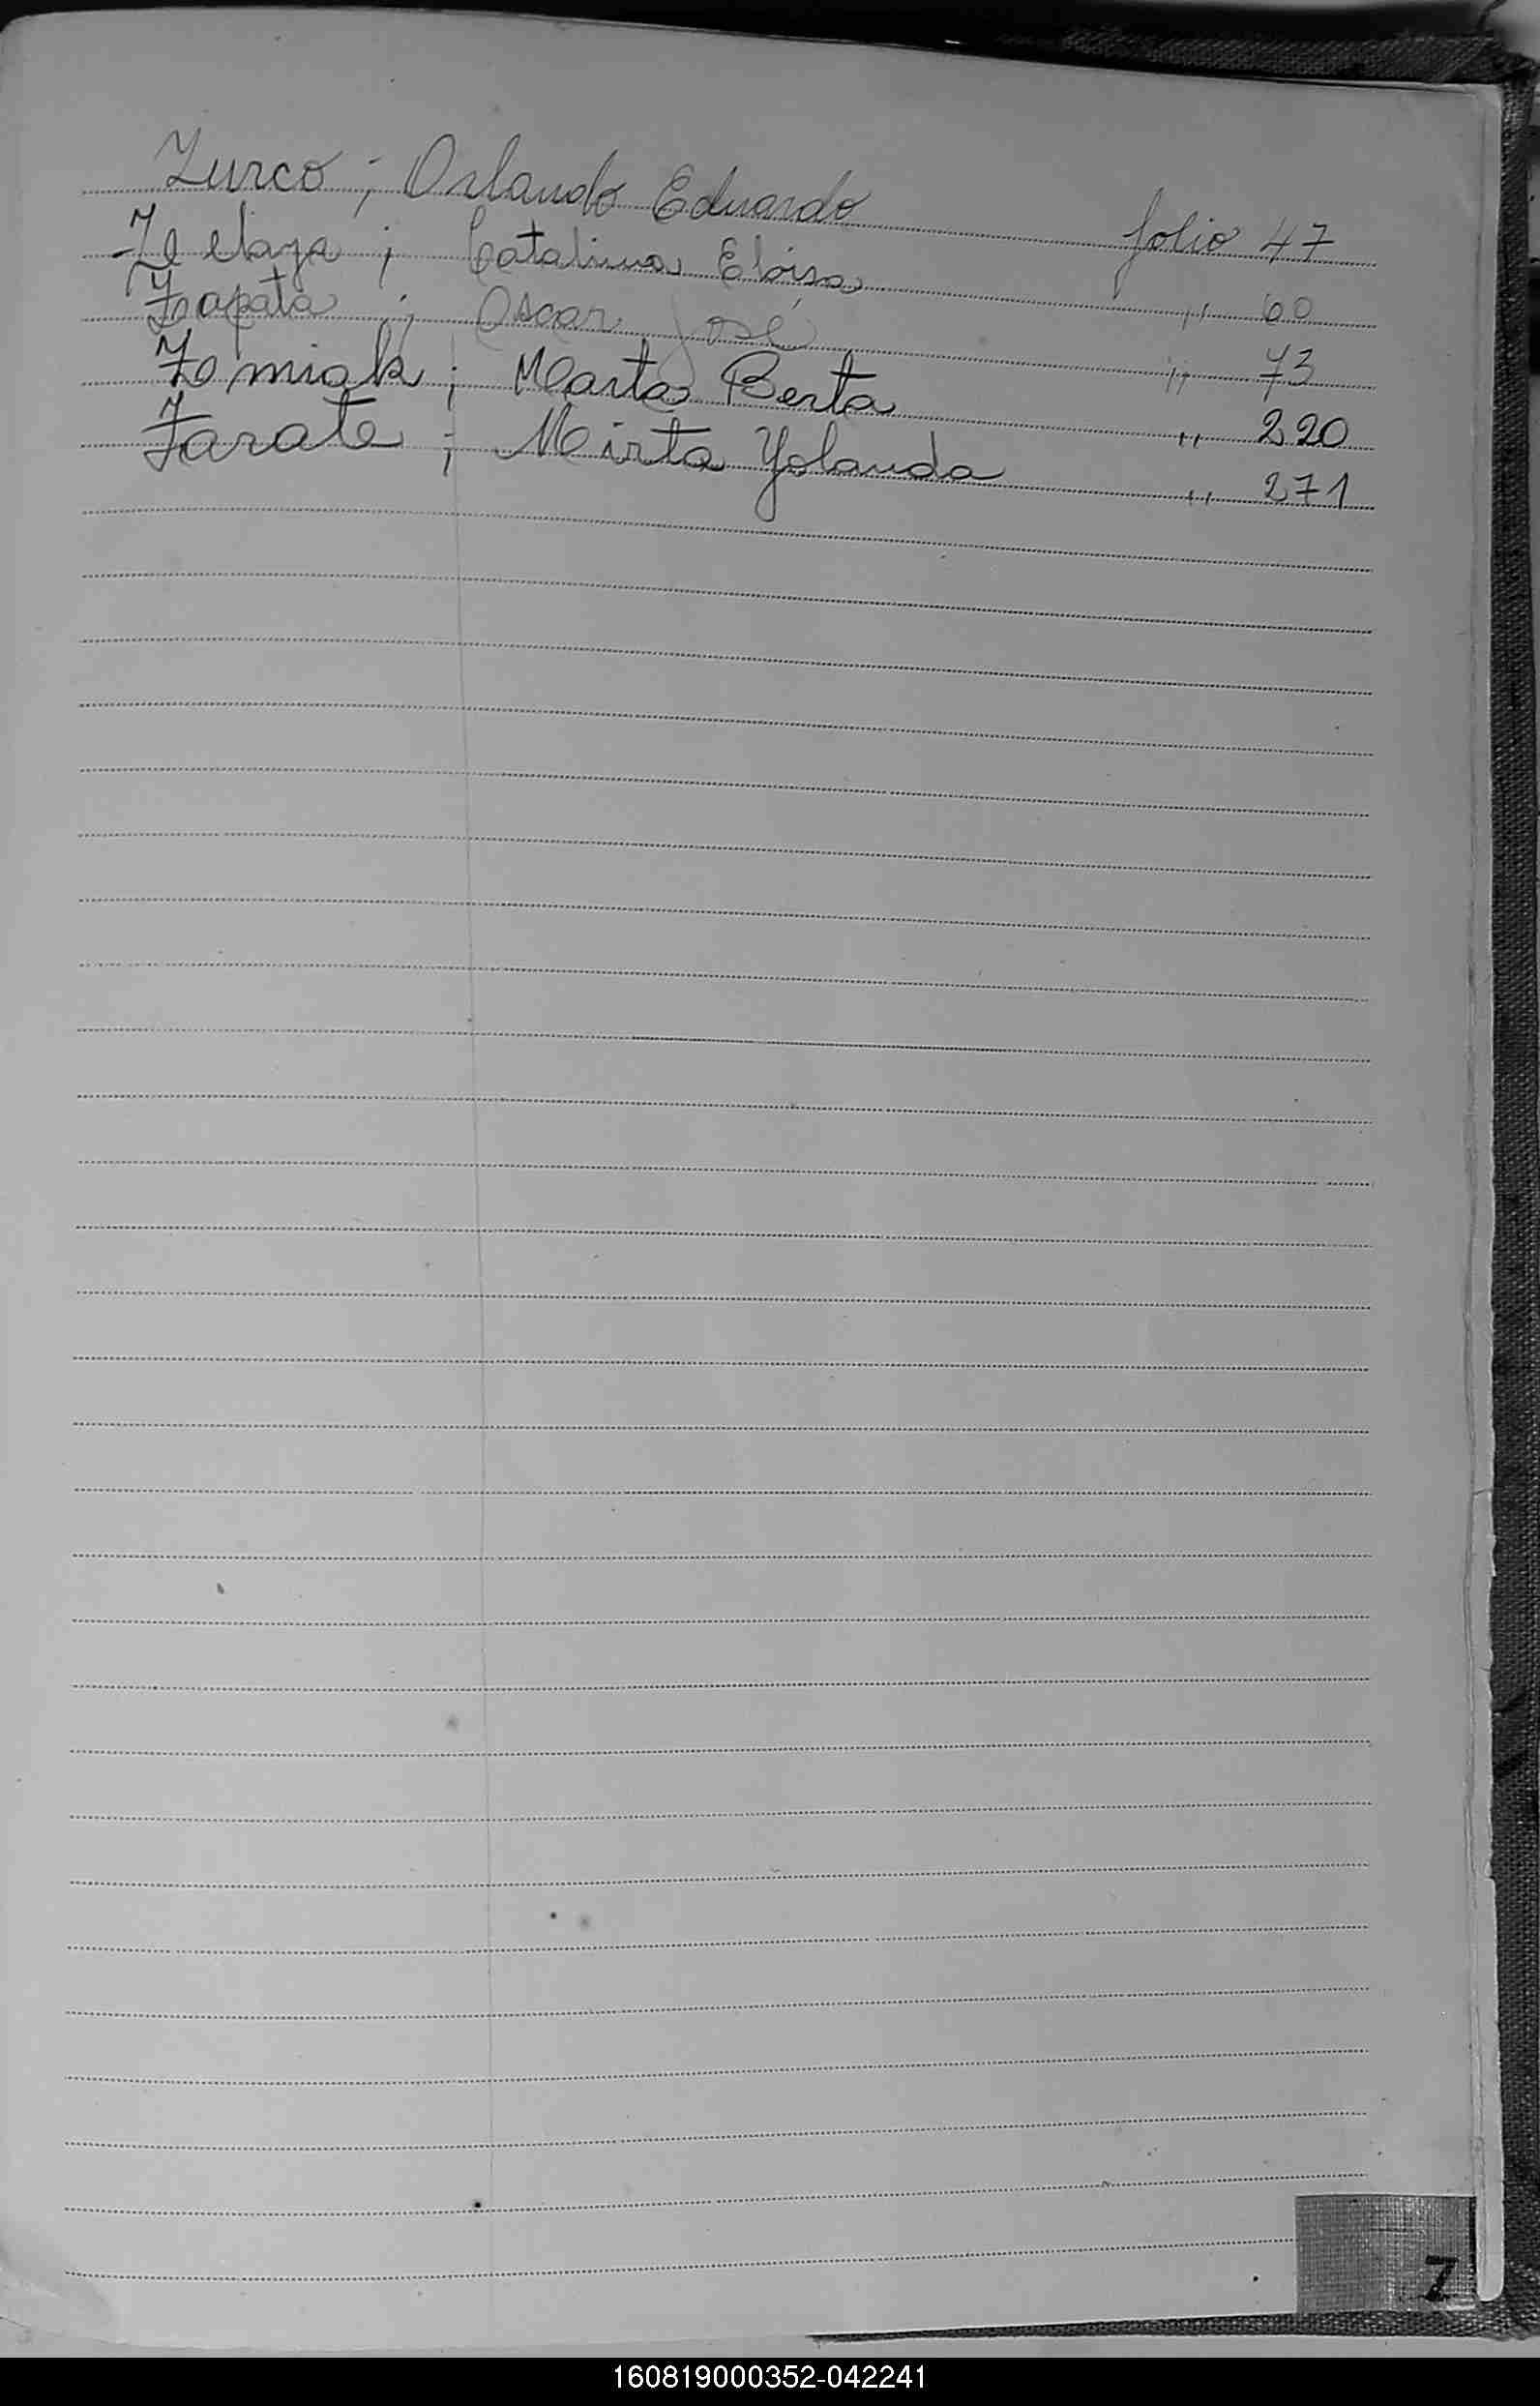 Zurco ; Orlando Eduardo folio 47
Zelaya ; Catalina Eloisa " 60
Zapata ; Oscar José " 73
Zemiak ; Marta Berta " 220
Zarate ; Mirta Yolanda " 271
Z
160819000352-042241